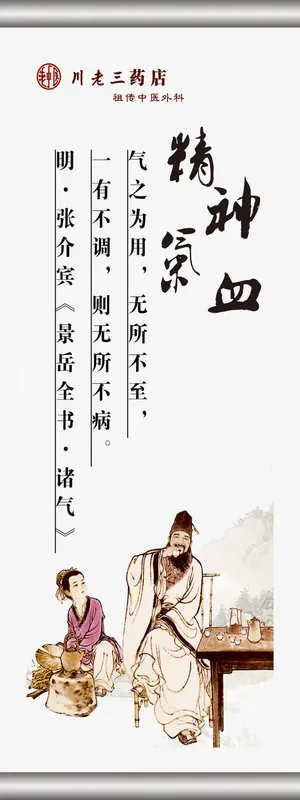 川老三药店
祖传中医外科
精神
氣血
气之为用，无所不至，
一有不调，则无所不病。
明·张介宾《景岳全书·诸气》